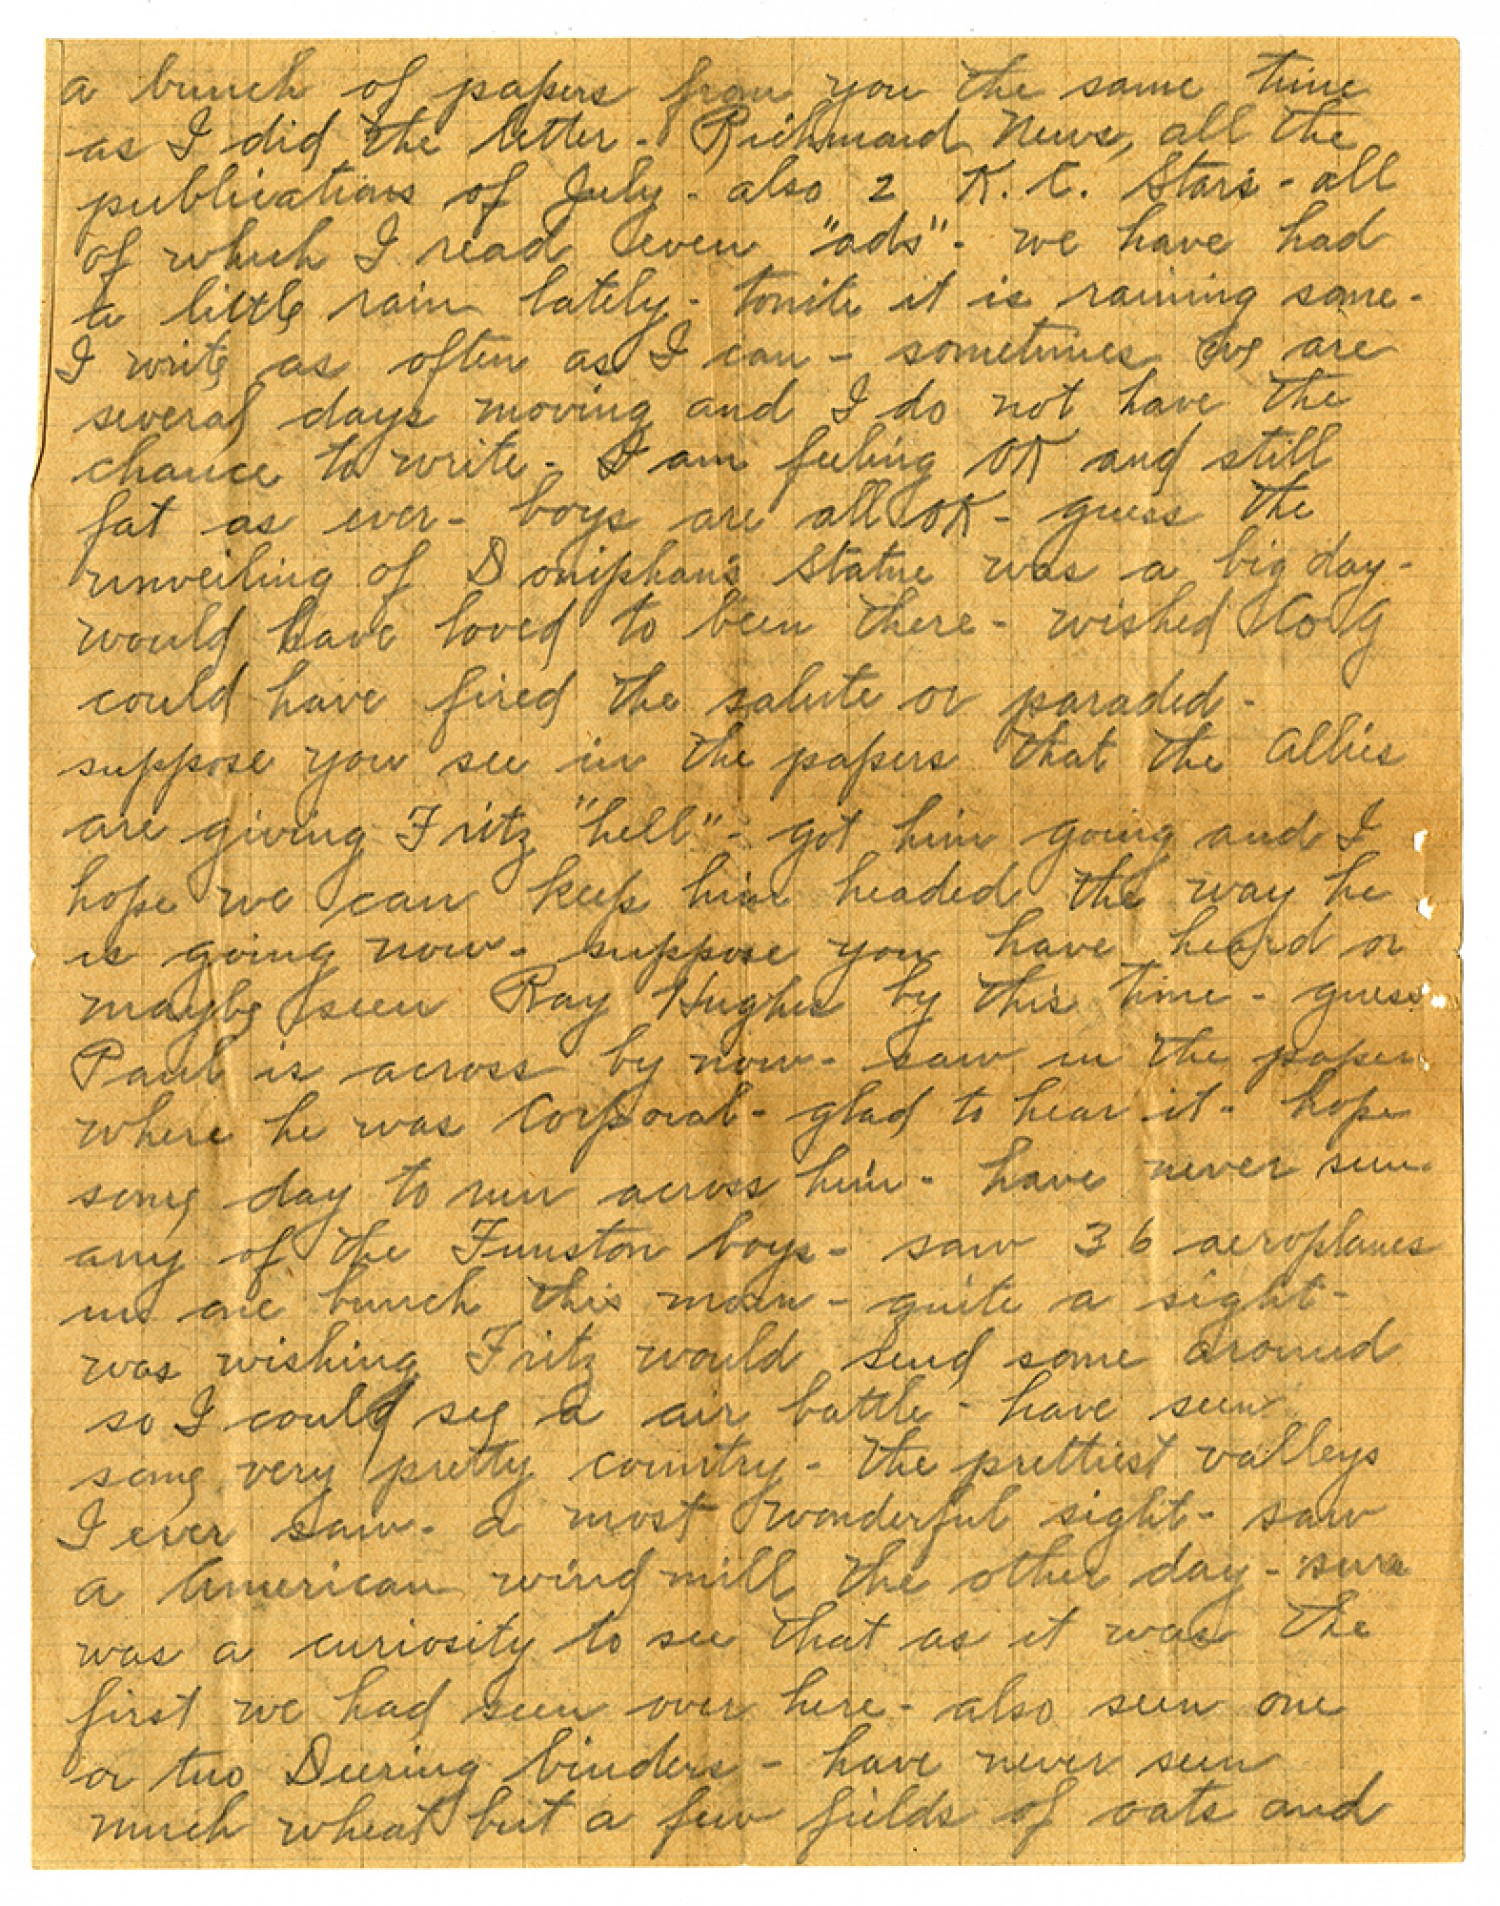 a bunch of papers from you the same time
as I did the letter - Richmond News, all the
publications of July - also 2 K.C. Stars - all
of which I read even "ads" - we have had
a little rain lately - tonite it is raining some -
I write as often as I can - sometimes we are
several days moving and I do not have the
chance to write - I am feeling OK and still
fat as ever - boys are all OK - guess the
unveiling of Doniphan's Statue was a big day -
would have loved to been there - wished Co G
could have fired the salute or paraded -
suppose you see in the papers that the Allies
are giving Fritz "hell" - got him going and I
hope we can keep him headed the way he
is going now - suppose you have heard or
maybe seen Ray Hughes by this time - guess
Paul is across by now - saw in the paper
where he was Corporal - glad to hear it - hope
some day to run across him - have never seen
any of the Funston boys - saw 36 aeroplanes
in one bunch this morn - quite a sight -
was wishing Fritz would send some around
so I could see a air battle - have seen
some very pretty country - the prettiest valleys
I ever saw - a most wonderful sight - saw
a American wind mill the other day - sure
was a curiosity to see that as it was the
first we had seen over here - also seen one
or two Deering binders - have never seen
much wheat but a few fields of oats and